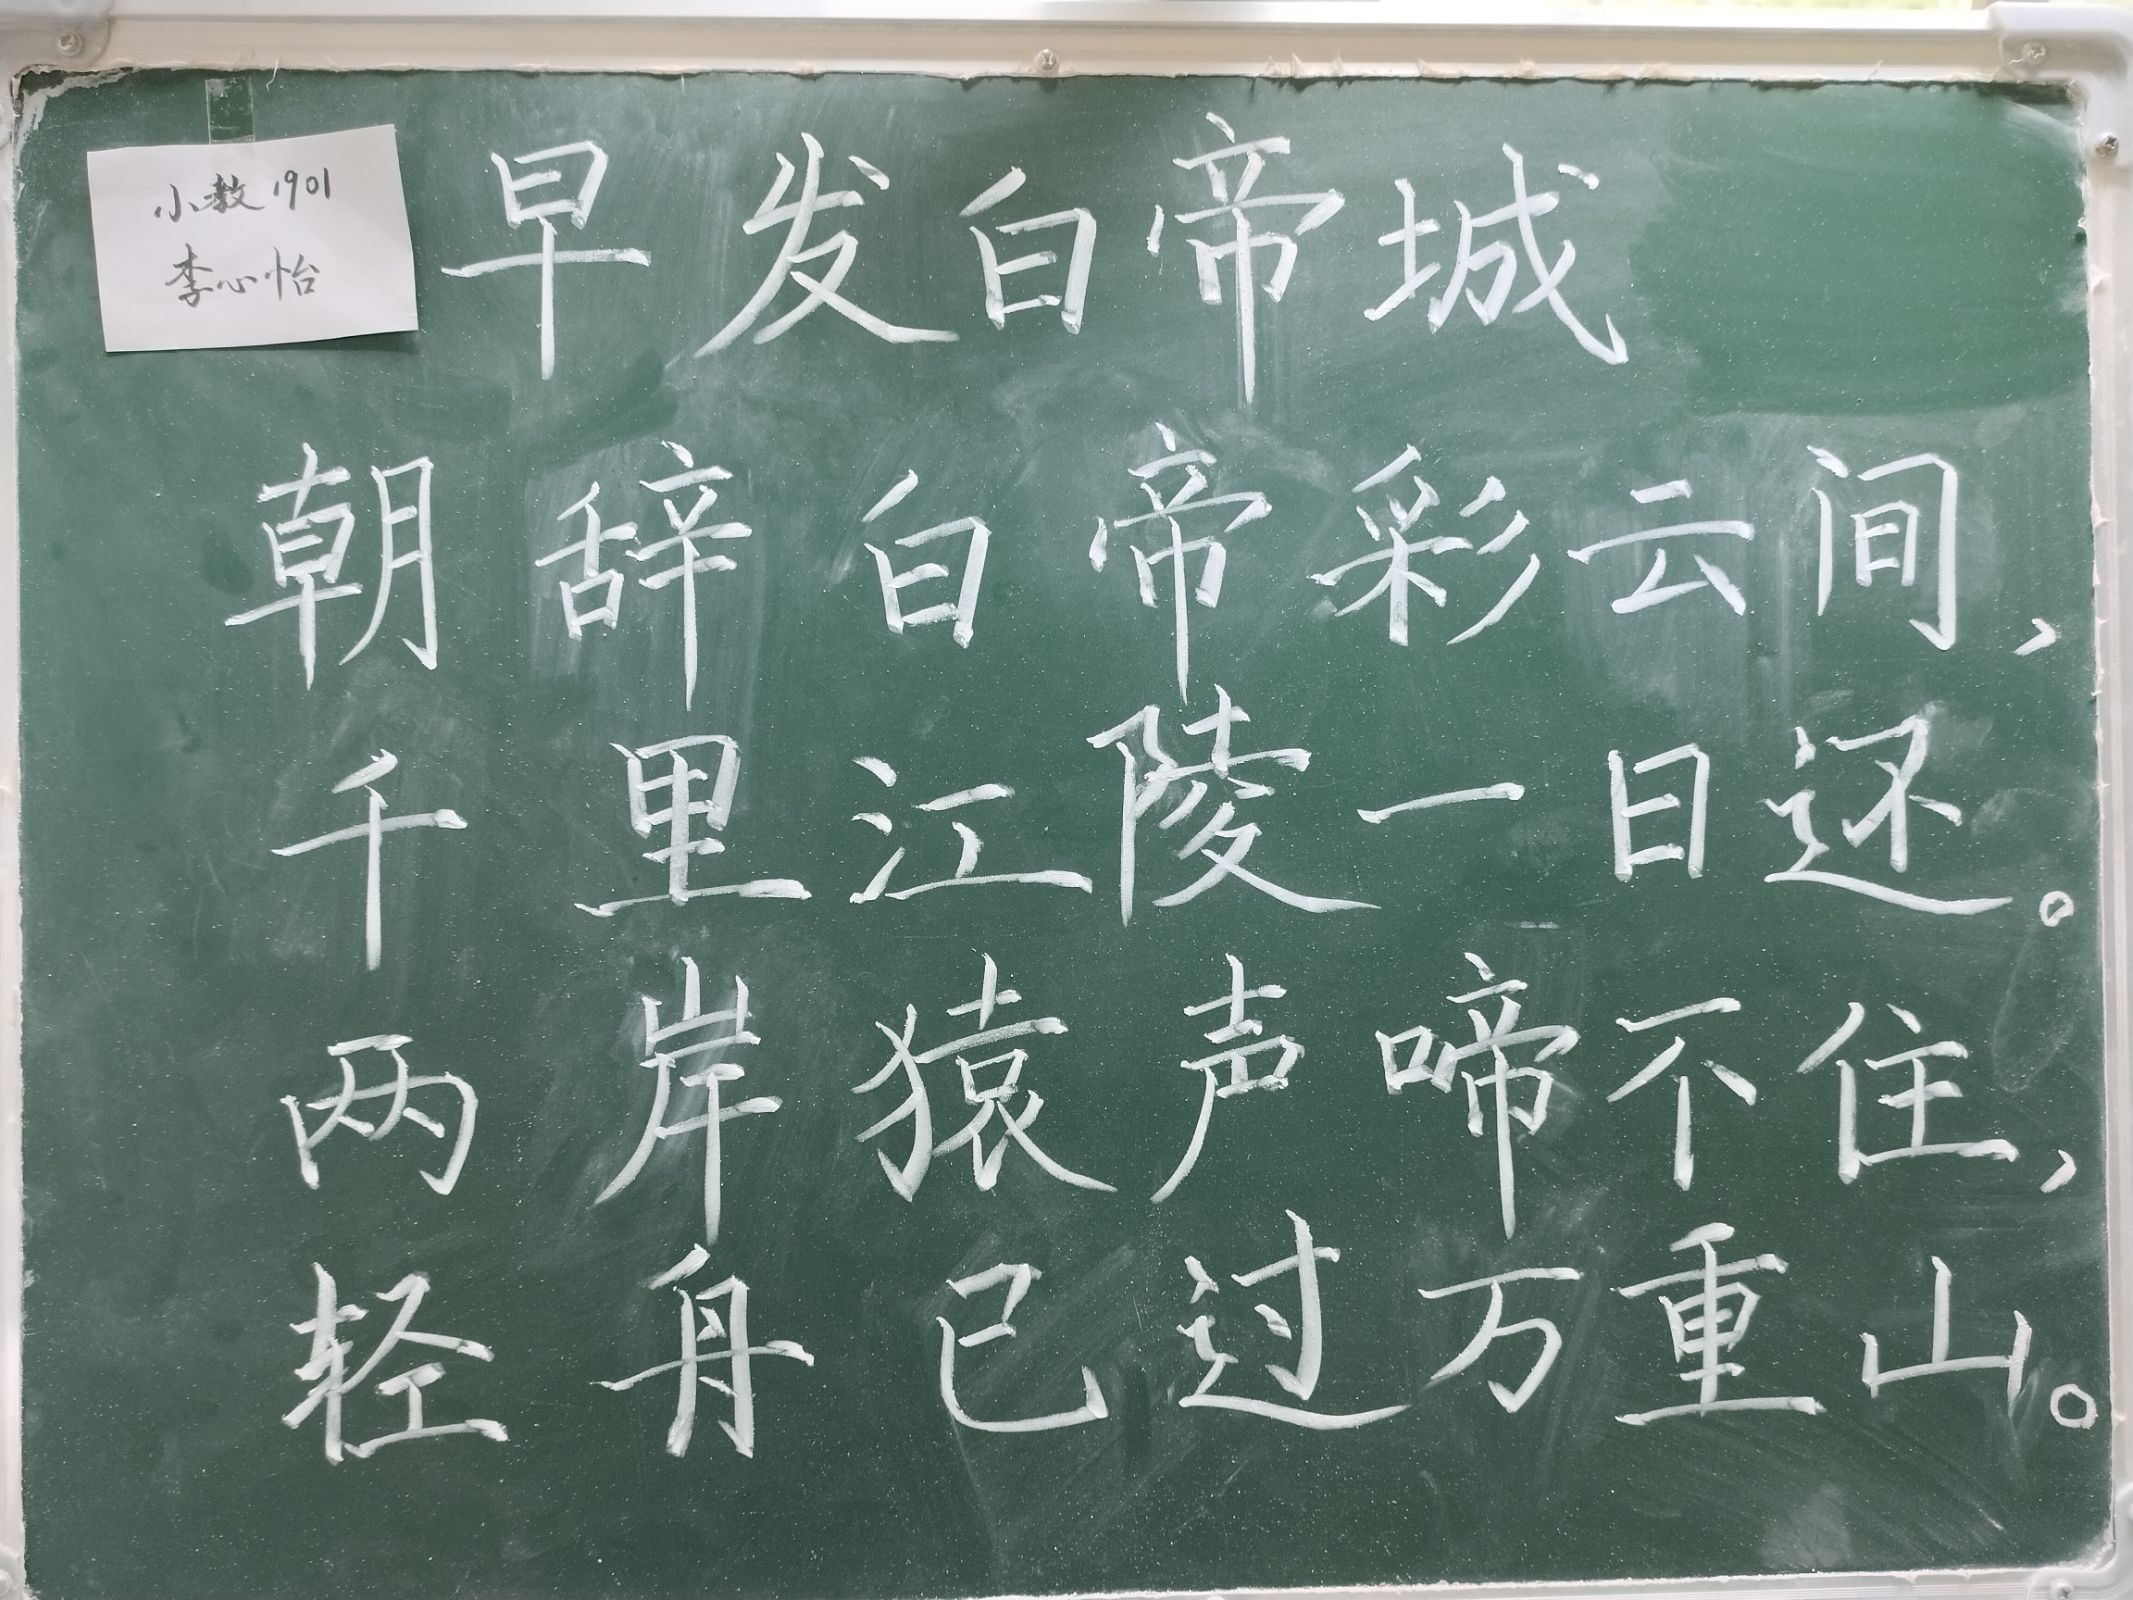 小教1901
李心怡
早发白帝城
朝辞白帝彩云间,
千里江陵一日还。
两岸猿声啼不住,
轻舟已过万重山。